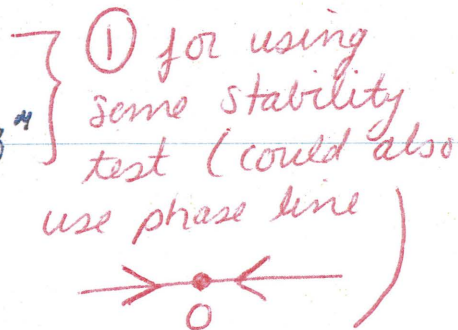 ① for using
some stability
test (could also
use phase line
)
0